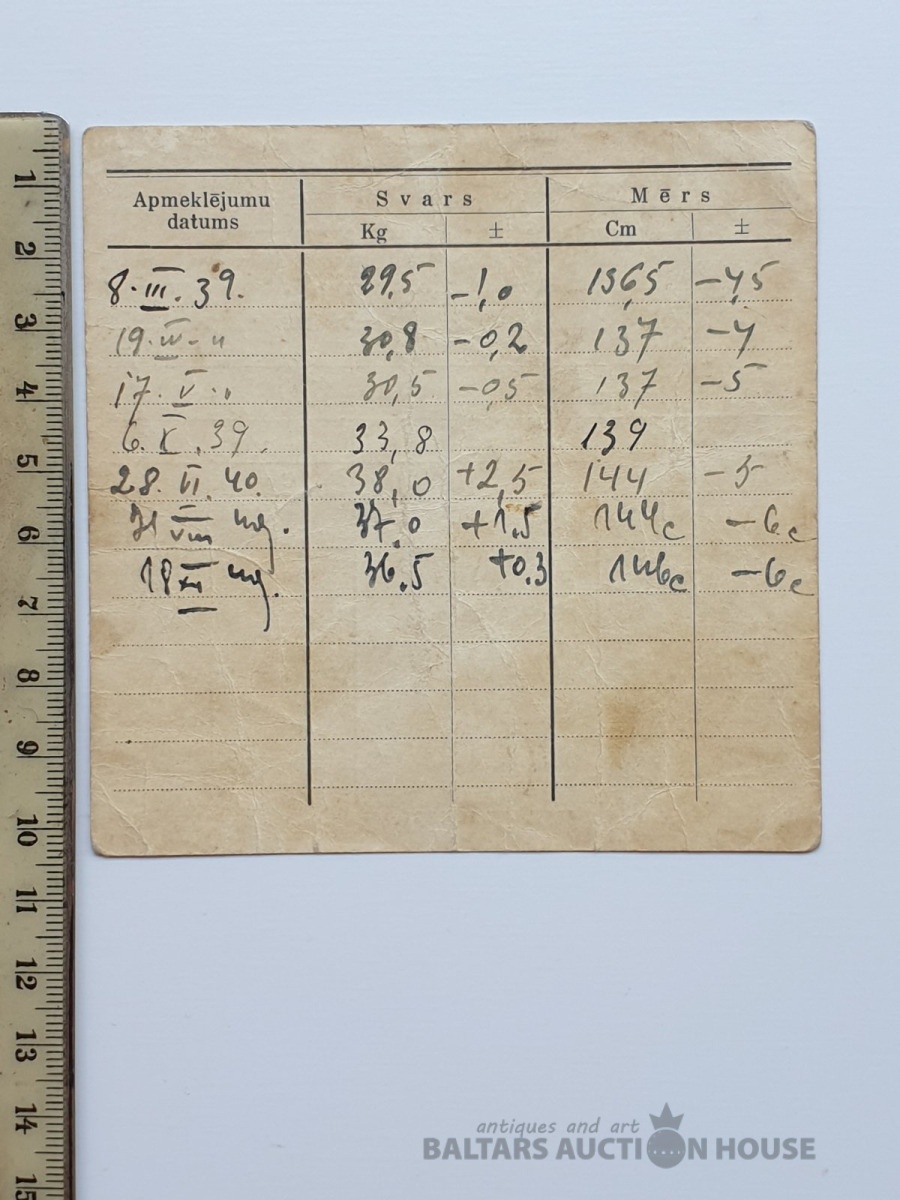 Apmeklējumu datums
Svars
Mērs
Kg ± Cm ±
8. III. 39. 29,5 -1,0 136,5 -4,5
19. IV. " 30,8 -0,2 137 -4
17. V. " 30,5 -0,5 137 -5
6. X. 39. 33,8 139
28. II. 40. 38,0 +2,5 144 -5
31 VIII 40. 37.0 +1.5 144c -6c
18 XII 40. 36.5 +0.3 146c -6c
1
2
3
4
5
6
7
8
9
10
11
12
13
14
15
antiques and art
BALTARS AUCTION HOUSE